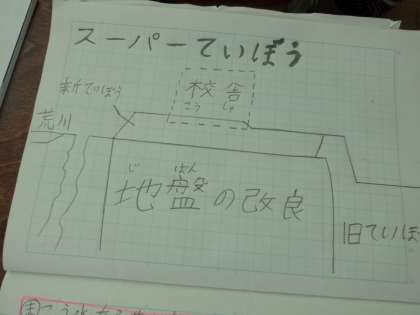 スーパーていぼう
校舎
こうしゃ
新ていぼう
荒川
じばん
地盤の改良
旧ていぼ